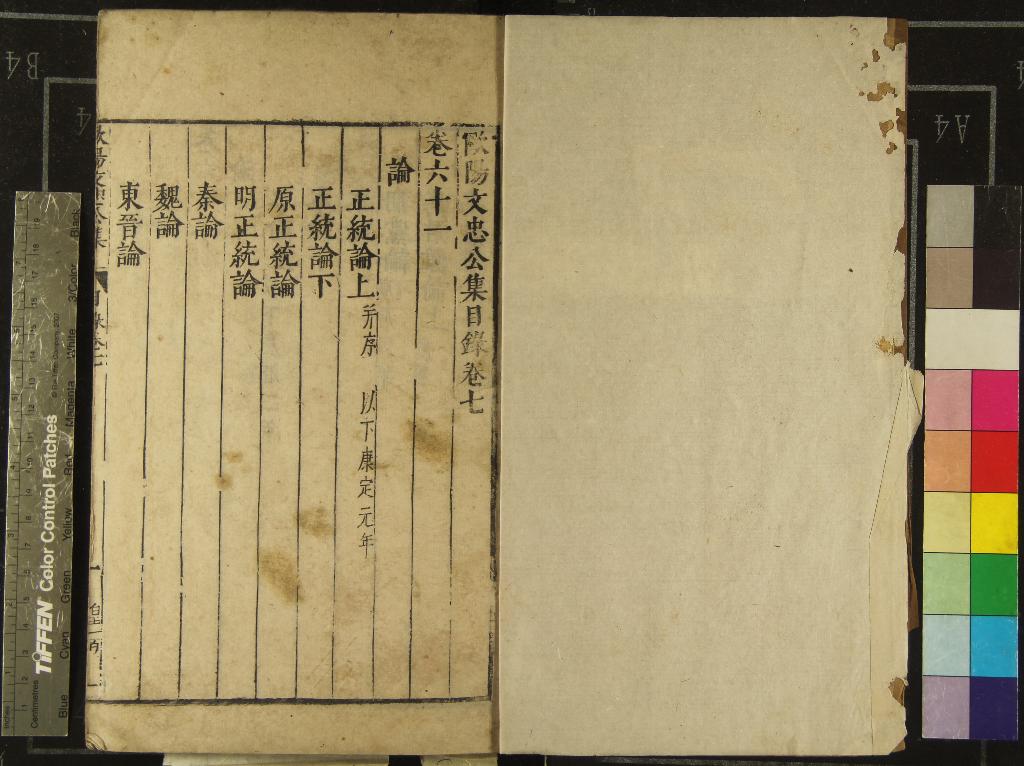 歐陽文忠公集目錄卷七
卷六十一
論
正統論上 并序 以下康定元年
正統論下
原正統論
明正統論
秦論
魏論
東晉論
B4
A4
TIFFEN Color Control Patches
Blue Cyan Green Yellow Red Magenta White 3/Color Black
Centimetres
Inches